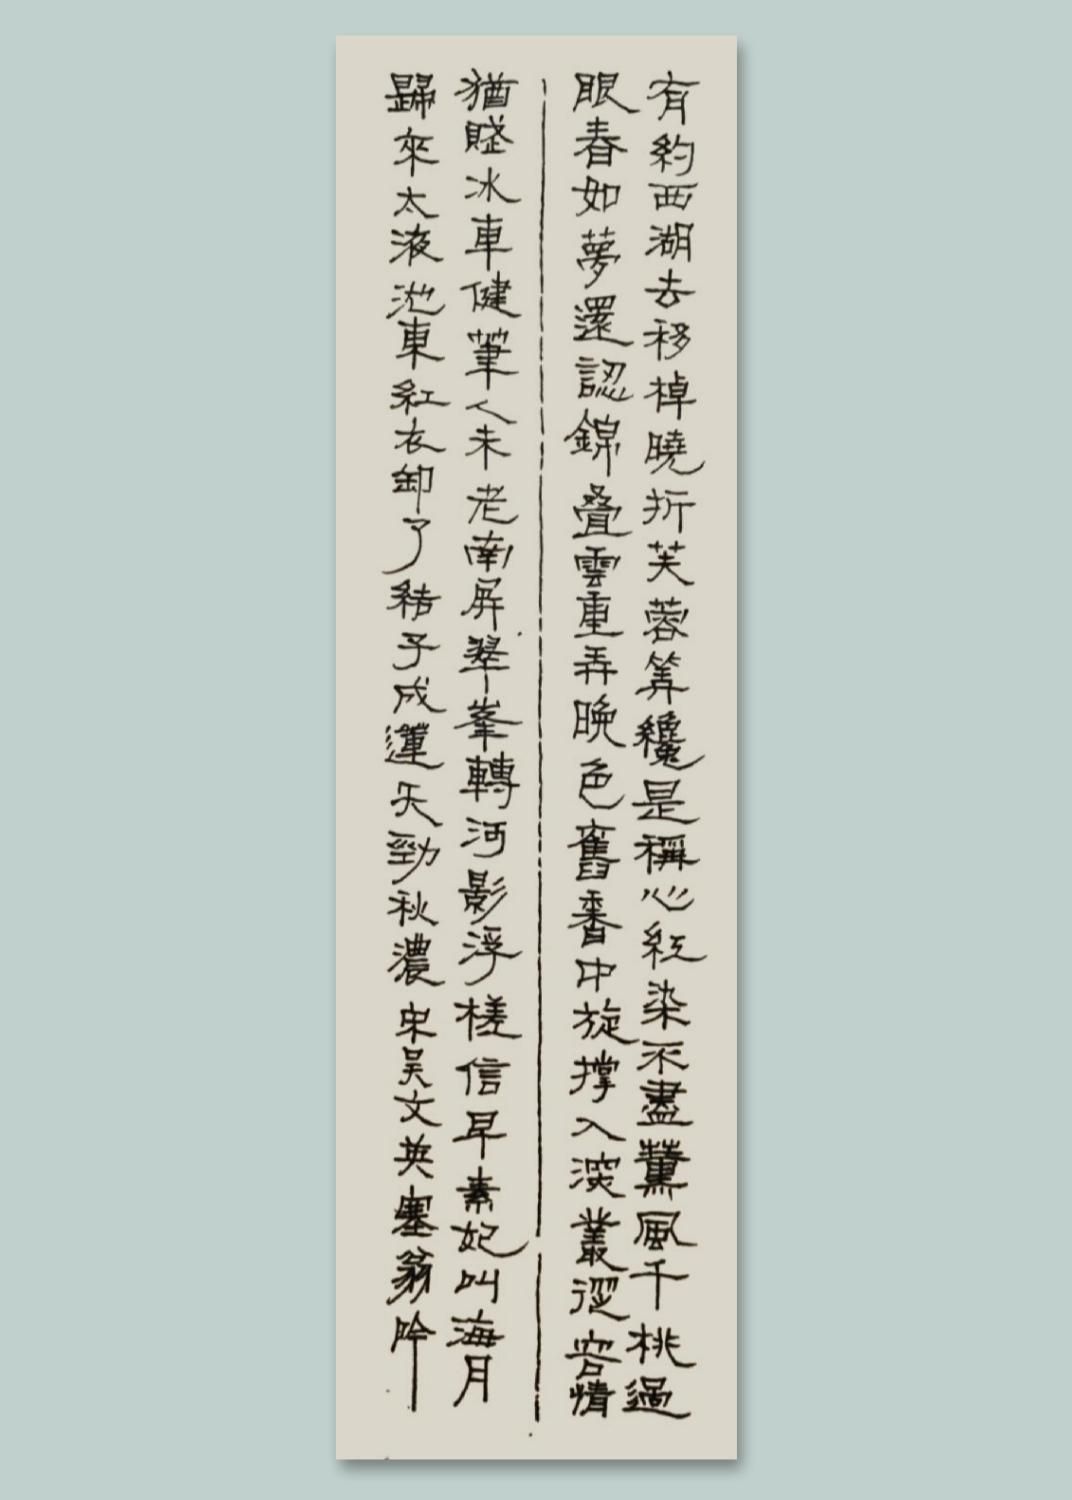 有約西湖去移棹曉折芙蓉筭纔是稱心紅染不盡薰風千桃過
眼春如夢還認錦叠雲重弄晚色舊香中旋撑入深叢從容情
猶賦冰車健筆人未老南屏翠峯轉河影浮槎信早素妃叫海月
歸來太液池東紅衣卸了結子成蓮天勁秋濃 宋吳文英塞翁吟